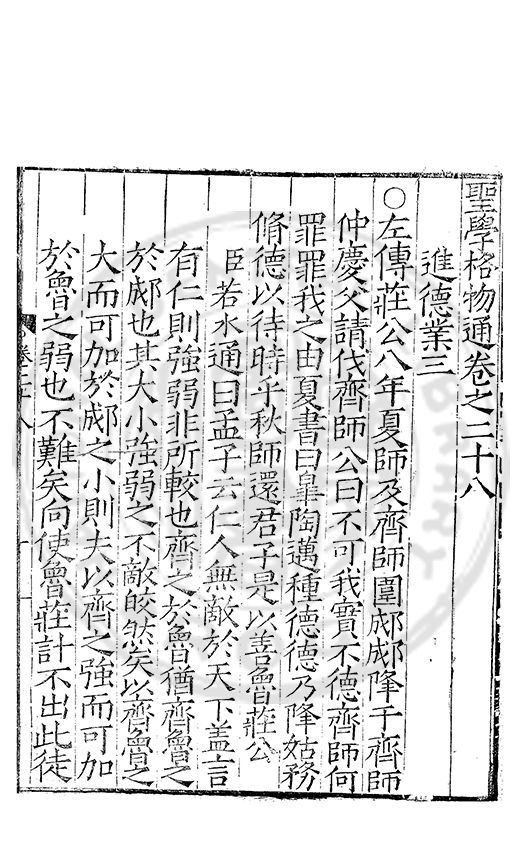 聖學格物通卷之二十八
進德業三
○左傳莊公八年夏師及齊師圍郕郕降于齊師
仲慶父請伐齊師公曰不可我實不德齊師何
罪罪我之由夏書曰臯陶邁種德德乃降姑務
脩德以待時乎秋師還君子是以善魯莊公
臣若水通曰孟子云仁人無敵於天下盖言
有仁則強弱非所較也齊之於魯猶齊魯之
於郕也其大小強弱之不敵皎然矣以齊魯之
大而可加於郕之小則夫以齊之強而可加
於魯之弱也不難矣向使魯莊計不出此徒